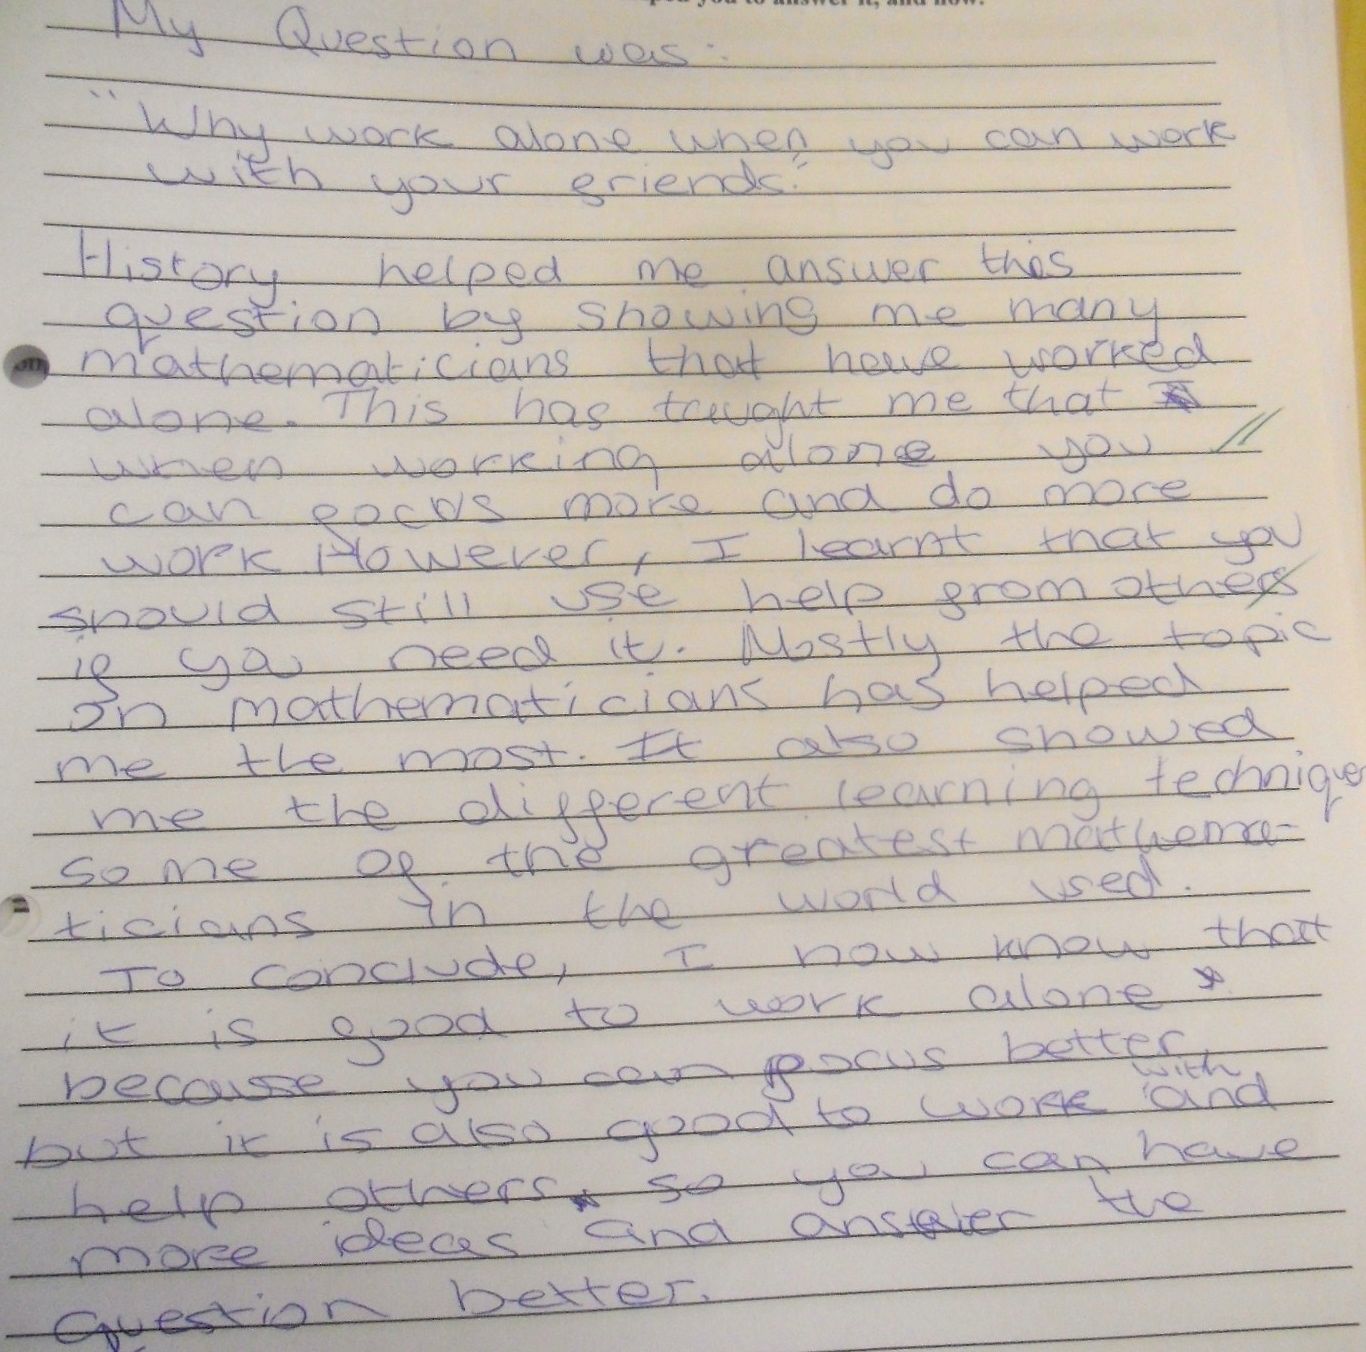 you to answer it, and how.
My Question was:
"Why work alone when you can work
with your friends."
History helped me answer this
question by showing me many
mathematicians that have worked
alone. This has taught me that
when working alone you
can focus more and do more
work However, I learnt that you
should still use help from others
if you need it. Mostly the topic
on mathematicians has helped
me the most. It also showed
me the different learning technique
some of the greatest mathema-
ticians in the world used.
To conclude, I now know that
it is good to work alone
because you can focus better,
but it is also good to work with and
help others so you can have
more ideas and answer the
question better.